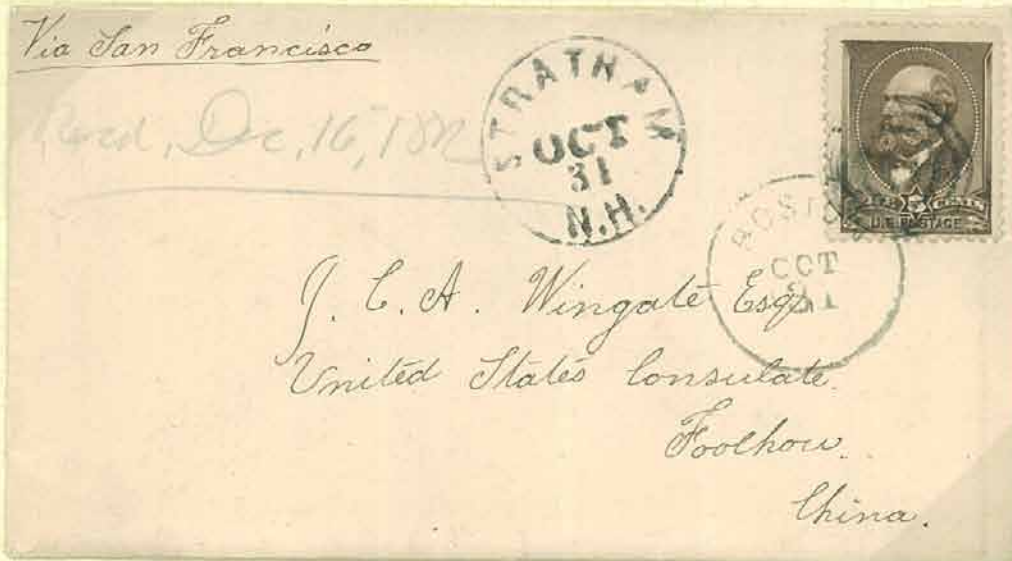 Via San Francisco
Recd, Dec, 16, 188
STRATHAM
OCT
31
N.H.
BOSTON
OCT
31
U.S. POSTAGE
J. C. A. Wingate Esq.
United States Consulate.
Foochow.
China.